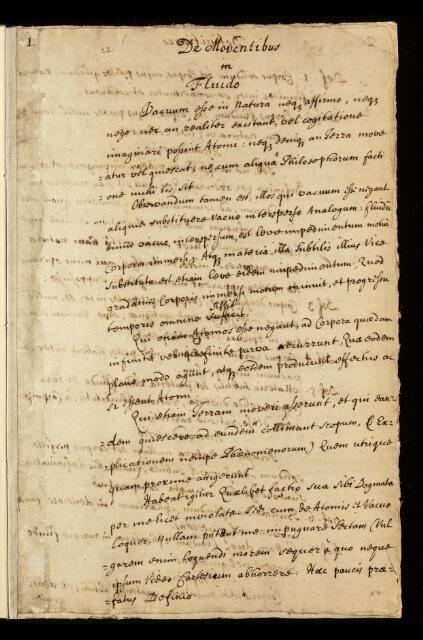 1.
De Moventibus
in
Fluido
Vacuum esse in Natura neq affirmo, neq
nego: nec an realiter existant, vel cogitatione
imaginari possint Atomi: neq deniq an Terra move
atur vel quiescat, ne cum aliqua Philosophorum facti
one mihi lis sit
Observandum tamen est, illos qui vacuum esse negant
aliquid substituere Vacuo intersperso Analogum: fluidū
vacuo, interspersum, est leve impedimentum motui
Corporis immersi; Atq materia illa Subtilis illius Vice
Substituta est etiam leve eidem impedimentum, Quod
gradatim Corporis immersi motum minuit, et progressu
temporis omnino Sistit
Qui etiam Atomos esse negant, ad Corpora quædam
infinite vel indefinite parva recurrunt Quæ eodem
plane modo agunt, atq eosdem producunt effectus ac
si essent Atomi
Qui etiam Terram moveri asserunt, et qui ean-
-dem quiescere, ad eundem collimant scopum, (Ex
-plicationem nempe Phænomenorum) Quem utrique
quam proxime attigerunt.
Habeat igitur Quælibet factio sua Sibi Dogmata
per me licet inviolata. Sed, cum de Atomis et Vacuo
Loquor, Nullam putent me impugnare Sectam (Vul
-garem enim loquendi morem sequor a quo neque
ipsum Video Cartesium abhorrere: Hæc paucis præ-
-fatus Definio